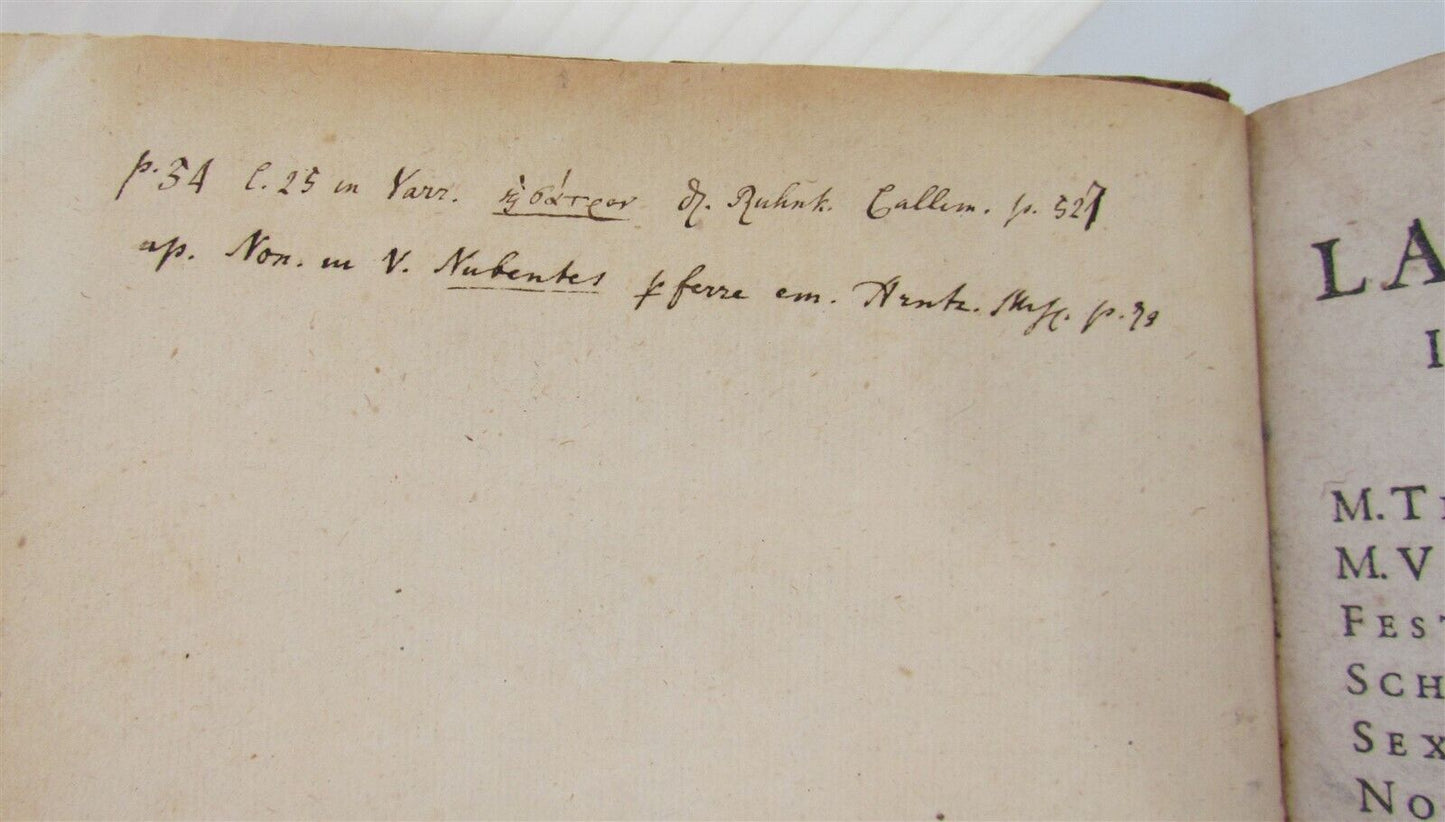 p. 34 l. 25 in Varr. ηδάτρον Ruhnk. Callim. p. 527
ap. Non. in V. Nubentes ferre em. Arntz. Misc. p. 78
LA
I
M. T
M. V
FEST
SCH
SEX
NO